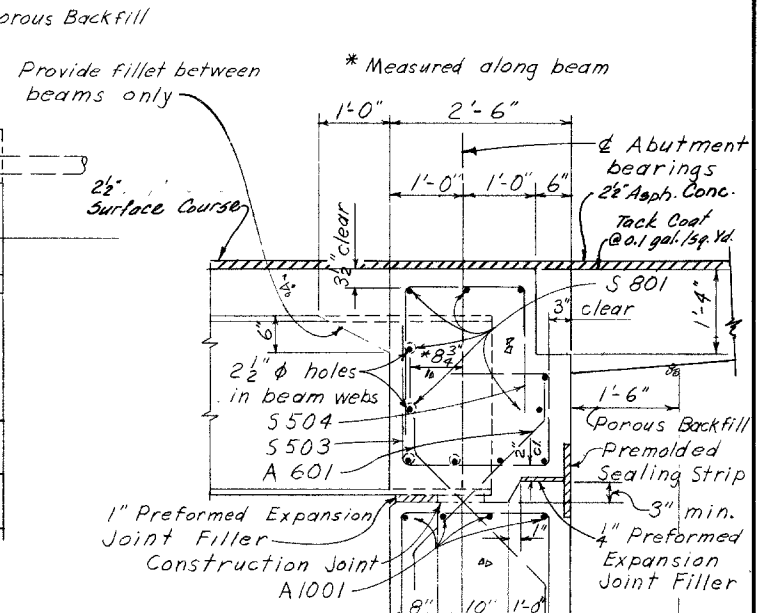 orous Backfill
Provide fillet between
beams only
* Measured along beam
1'-0"
2'-6"
℄ Abutment
bearings
1'-0"
1'-0"
6"
2½"
Surface Course
2½" Asph. Conc.
Tack Coat
@ 0.1 gal./sq. Yd.
3½" clear
"A"
S 801
3"
clear
1'-4"
6"
*8¾"
2½" ϕ holes
in beam webs
S 504
S 503
A 601
2" cl.
1'-6"
Porous Backfill
Premolded
Sealing Strip
3" min.
1" Preformed Expansion
Joint Filler
Construction Joint
A1001
1"
¼" Preformed
Expansion
Joint Filler
8"
10"
1'-0"